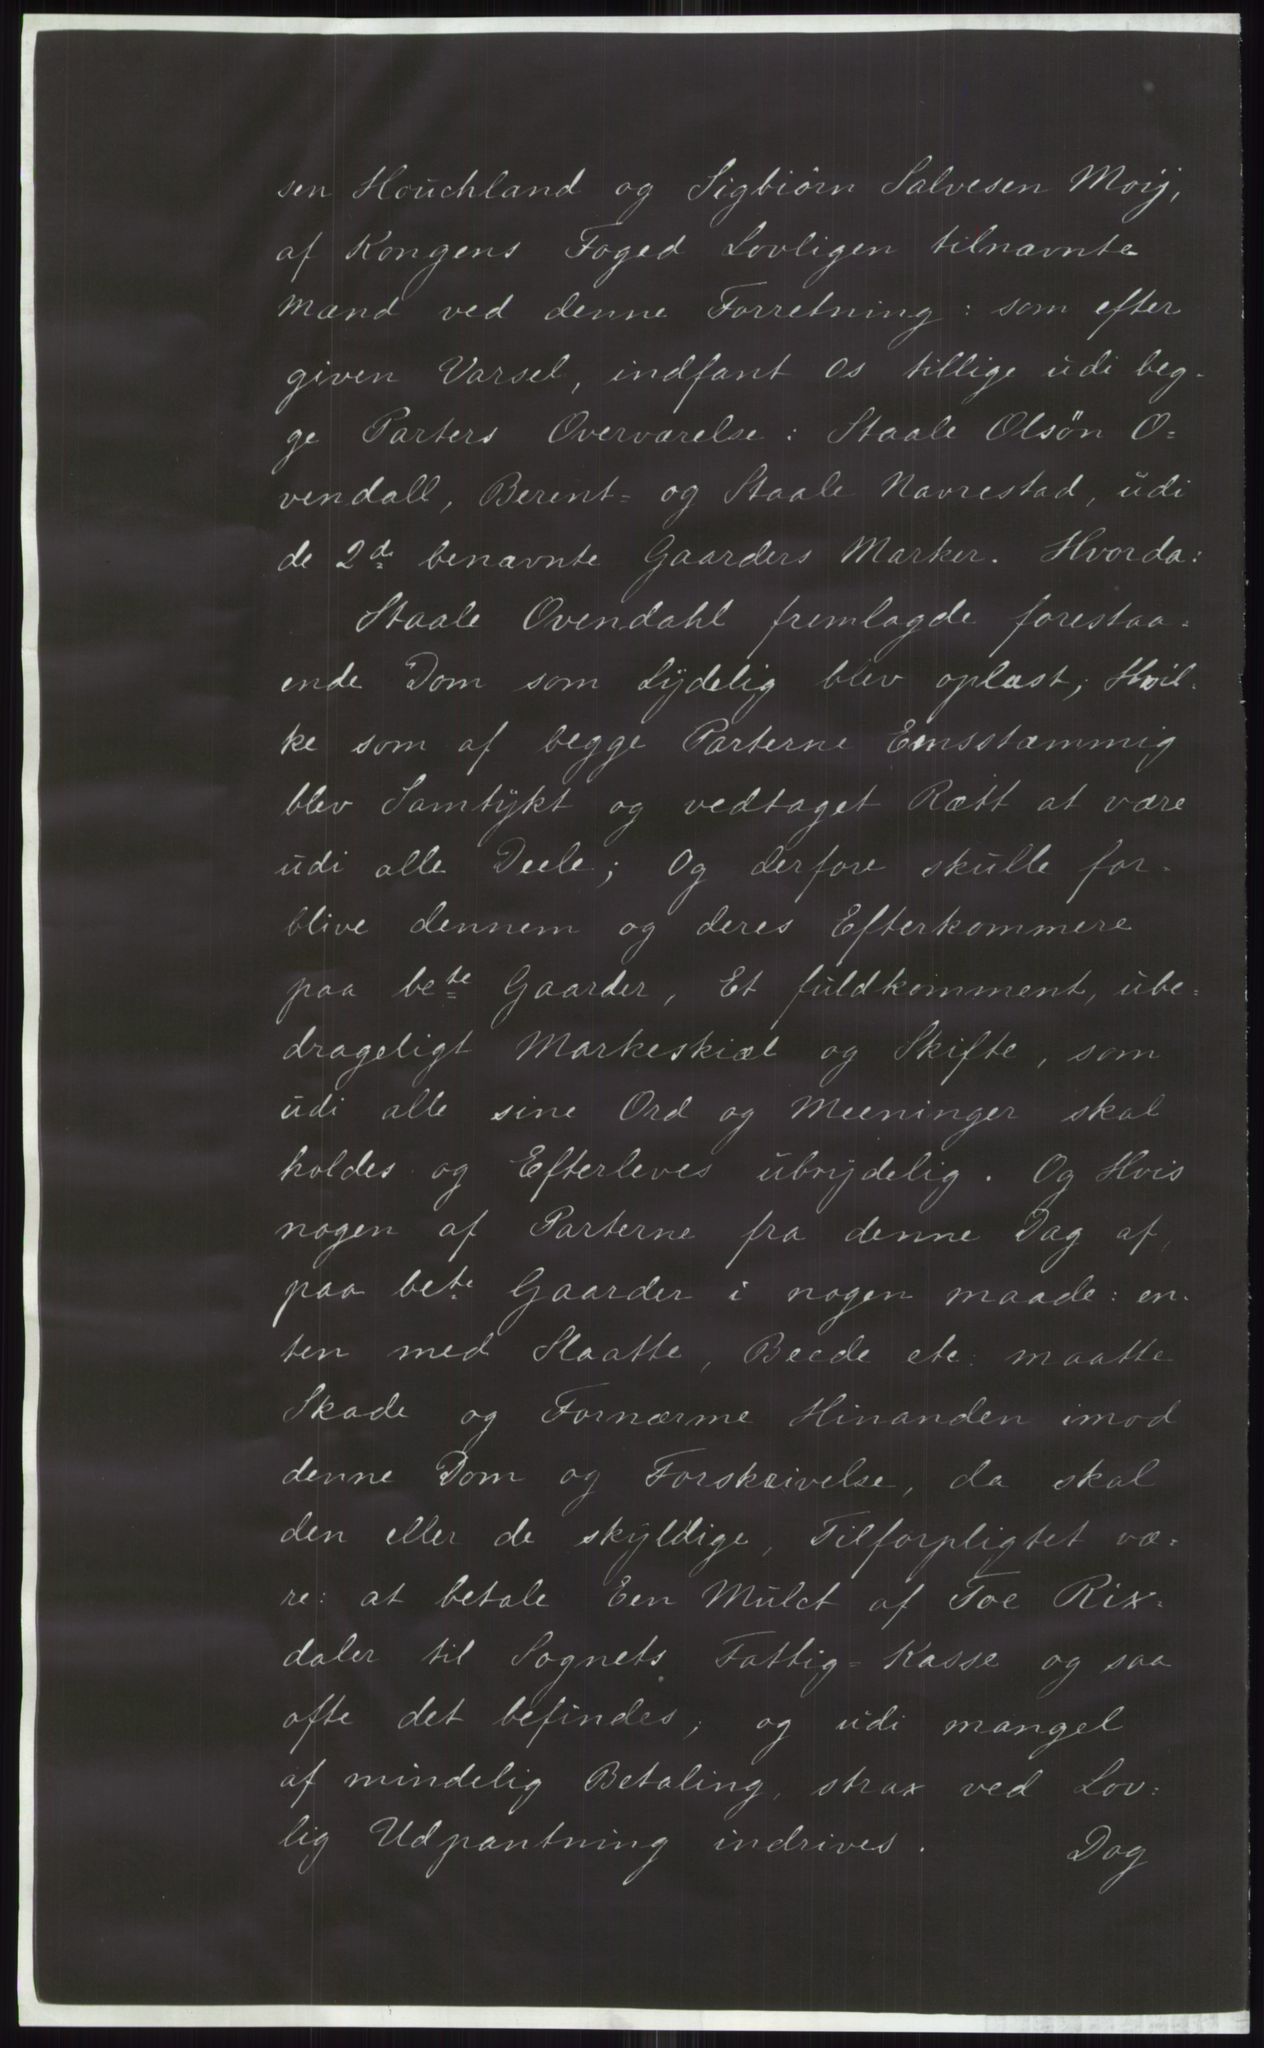 sen Houchland og Sigbiörn Salvesen Moij,
af Kongens Foged Lovligen tilnævnte
Mænd ved denne Forretning: som efter
given Varsel, indfant os tillige udi beg-
ge Parters Overværelse: Staale Olsön O=
vendall, Berent= og Staale Navrestad, udi
de 2de benævnte Gaarders Marker. Hvorda:
Staale Ovendahl fremlagde forestaa-
ende Dom som Lÿdelig blev oplæst; Hvil-
ke som af begge Parterne Eensstæmmig
blev Samtÿkt og vedtaget Rætt at være
udi alle Deele; Og derfore skulle for-
blive dennem og deres Efterkommere
paa bete Gaarder, Et fuldkomment, ube-
drageligt Markeskiæl og Skifte, som
udi alle sine Ord og Meeninger skal
holdes og Efterleves ubrÿdelig. Og Hvis
nogen af Parterne fra denne Dag af,
paa bete Gaarder i nogen maade: en-
ten med Slaatte, Beede etc: maatte
Skade og Fornærme Hinanden imod
denne Dom og Forskrivelse, da skal
den eller de skÿldige, Tilforpligtet væ-
re: at betale Een Mulct af Toe Rix-
daler til Sognets Fattig=Kasse og saa
ofte det befindes; og udi mangel
af mindelig Betaling, strax ved Lov:
lig Udpantning indrives. Dog